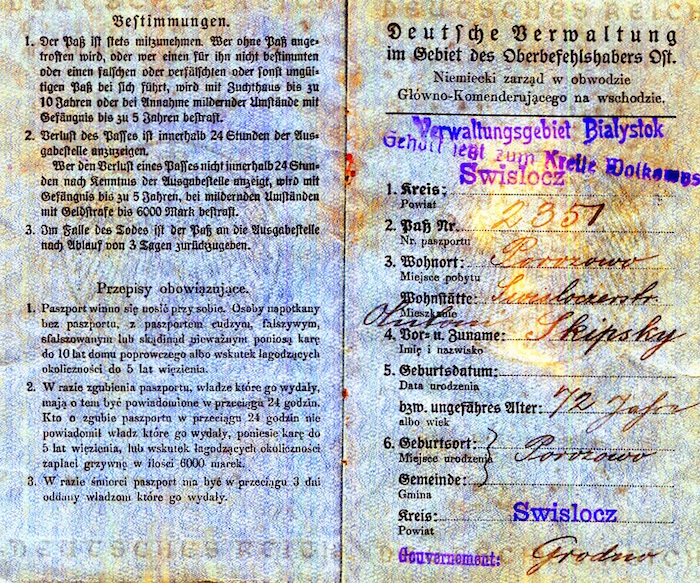 Bestimmungen.
1. Der Paß ist stets mitzunehmen. Wer ohne Paß ange-
troffen wird, oder wer einen für ihn nicht bestimmten
oder einen falschen oder verfälschten oder sonst ungül-
tigen Paß bei sich führt, wird mit Zuchthaus bis zu
10 Jahren oder bei Annahme mildernder Umstände mit
Gefängnis bis zu 5 Jahren bestraft.
2. Verlust des Passes ist innerhalb 24 Stunden der Aus-
gabestelle anzuzeigen.
Wer den Verlust eines Passes nicht innerhalb 24 Stun-
den nach Kenntnis der Ausgabestelle anzeigt, wird mit
Gefängnis bis zu 5 Jahren, bei mildernden Umständen
mit Geldstrafe bis 6000 Mark bestraft.
3. Im Falle des Todes ist der Paß an die Ausgabestelle
nach Ablauf von 3 Tagen zurückzugeben.
Przepisy obowiązujące.
1. Paszport winno się nosić przy sobie. Osoby napotkany
bez paszportu, z paszportem cudzym, fałszywym,
sfalszowanym lub skądinąd nieważnym poniosą karę
do 10 lat domu poprowczego albo wskutek łagodzących
okoliczności do 5 lat więzienia.
2. W razie zgubienia paszportu, władze które go wydały,
mają o tem być powiadomione w przeciągu 24 godzin.
Kto o zgubie paszportu w przeciągu 24 godzin nie
powiadomił władz które go wydały, poniesie karę do
5 lat więzienia, lub wskutek łagodzących okoliczności
zapłaci grzywnę w ilości 6000 marek.
3. W razie śmierci paszport ma być w przeciągu 3 dni
oddany władzom które go wydały.
Deutsches Reich
Deutsche Verwaltung
im Gebiet des Oberbefehlshabers Ost.
Niemiecki zarząd w obwodzie
Główno-Komenderującego na wschodzie.
Verwaltungsgebiet Białystok
Gehört jetzt zum Kreise Wolkowys
1. Kreis: Swislocz
Powiat
2. Paß Nr. 2351
Nr. paszportu
3. Wohnort: Porozowo
Miejsce pobytu
Wohnstätte: Swisloczerstr.
Mieszkanie
4. Vor- u. Zuname: Skipsky
Imię i nazwisko
5. Geburtsdatum:
Data urodzenia
bzw. ungefähres Alter: 72 Jahr
albo wiek
6. Geburtsort: Porozowo
Miejsce urodzenia
Gemeinde:
Gmina
Kreis: Swislocz
Powiat
Gouvernement: Grodno
Deutsches Reich